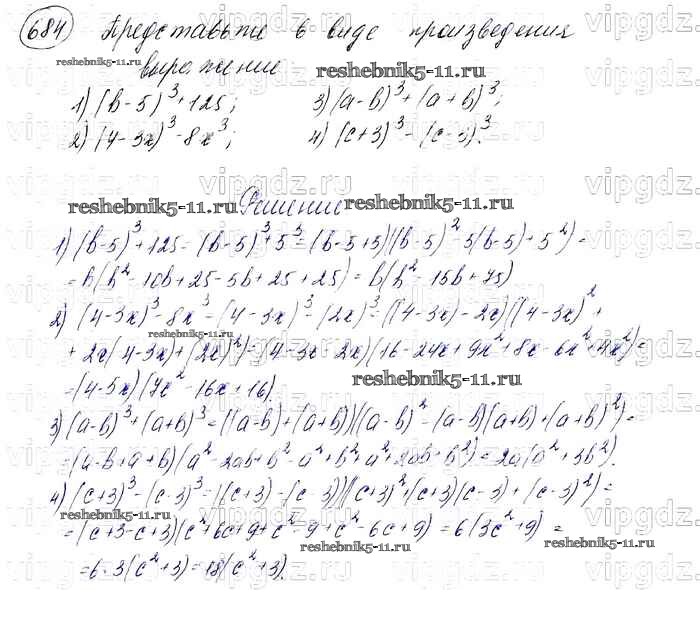 684 Представьте в виде произведения
выражение
1) (b-5)³+125; 3) (a-b)³+(a+b)³;
2) (4-3x)³-8x³; 4) (c+3)³-(c-3)³.
Решение
1) (b-5)³+125=(b-5)³+5³=(b-5+5)((b-5)²-5(b-5)+5²)=
=b(b²-10b+25-5b+25+25)=b(b²-15b+75)
2) (4-3x)³-8x³=(4-3x)³-(2x)³=((4-3x)-2x)((4-3x)²+
+2x(4-3x)+(2x)²)=(4-3x-2x)(16-24x+9x²+8x-6x²+4x²)=
=(4-5x)(7x²-16x+16).
3) (a-b)³+(a+b)³=((a-b)+(a+b))((a-b)²-(a-b)(a+b)+(a+b)²)=
=(a-b+a+b)(a²-2ab+b²-a²+b²+a²+2ab+b²)=2a(a²+3b²).
4) (c+3)³-(c-3)³=((c+3)-(c-3))((c+3)²+(c+3)(c-3)+(c-3)²)=
=(c+3-c+3)(c²+6c+9+c²-9+c²-6c+9)=6(3c²+9)=
=6·3(c²+3)=18(c²+3).
vipgdz.ru
reshebnik5-11.ru